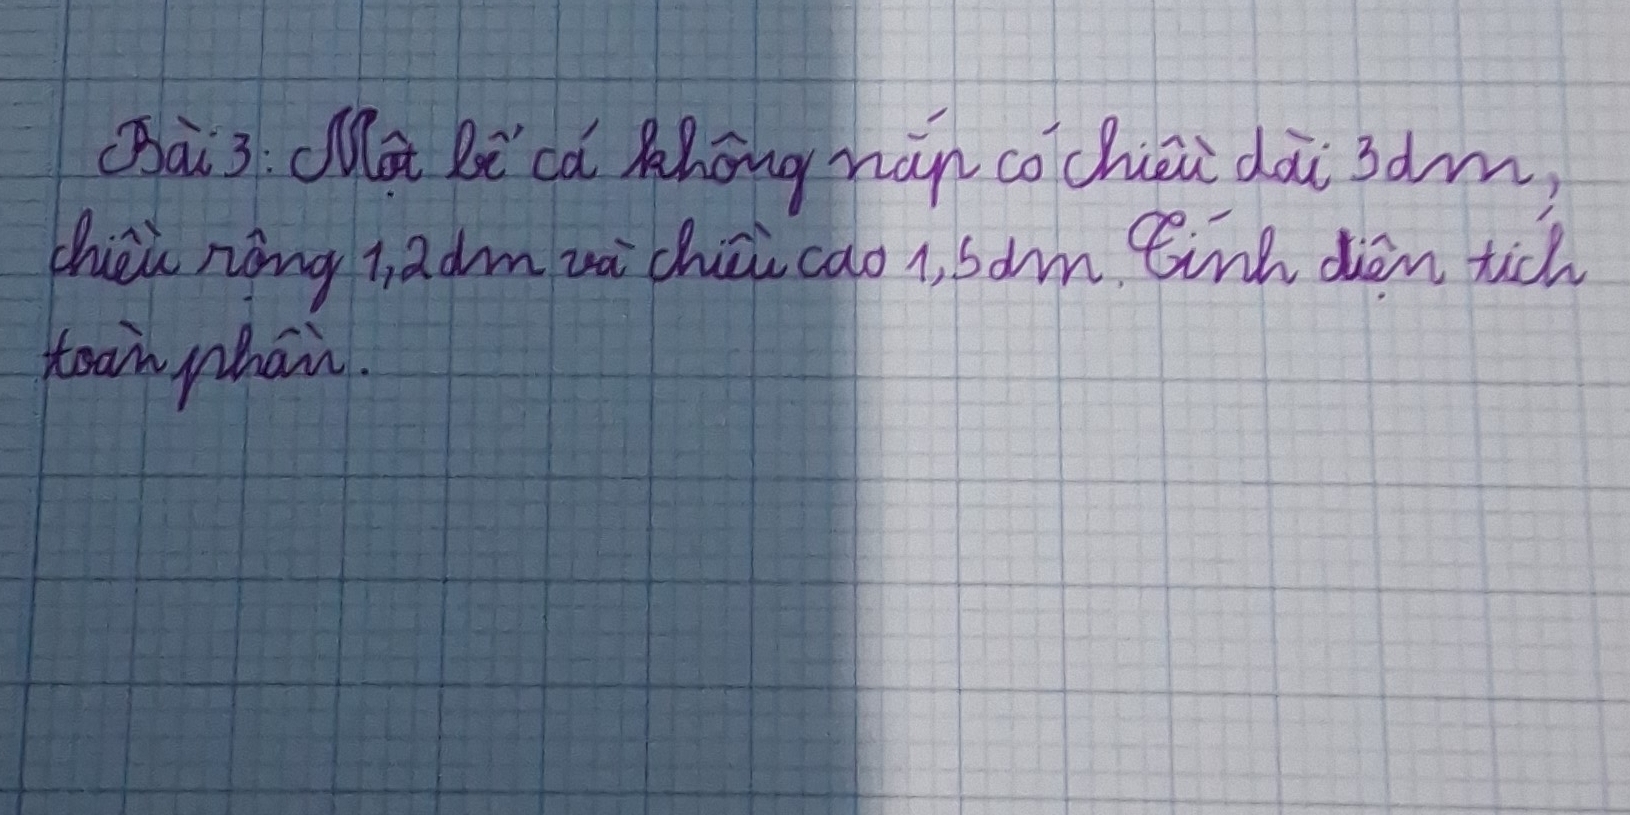 Bài 3: Một bể cá không nắp có chiều dài 3dm,
chiều rộng 1,2dm và chiều cao 1,5dm. Tính diện tích
toàn phần.